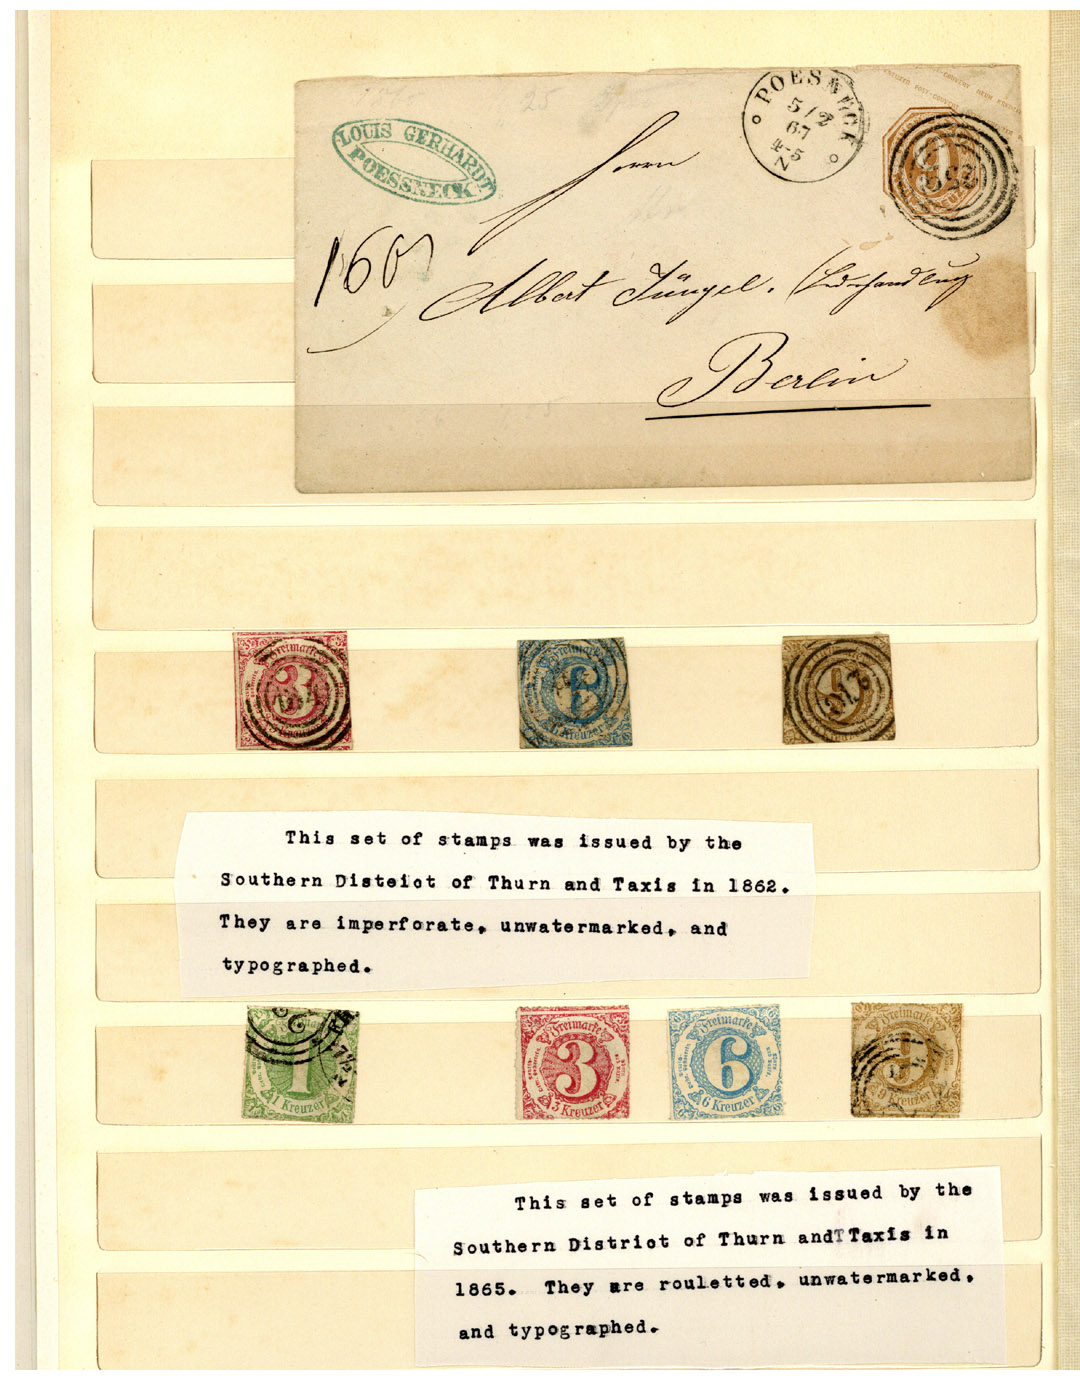 LOUIS GERHARDT
POESSNECK
POESSNECK
5/2
67
4-5
N
Herrn
160
Albert Jüngel.
Berlin
Freimarke
3
3 Kreuzer
Freimarke
6
6 Kreuzer
This set of stamps was issued by the
Southern Disteict of Thurn and Taxis in 1862.
They are imperforate, unwatermarked, and
typographed.
1
1 Kreuzer
Freimarke
3
3 Kreuzer
Freimarke
6
6 Kreuzer
Freimarke
9
9 Kreuzer
This set of stamps was issued by the
Southern District of Thurn andTTaxis in
1865. They are rouletted, unwatermarked,
and typographed.